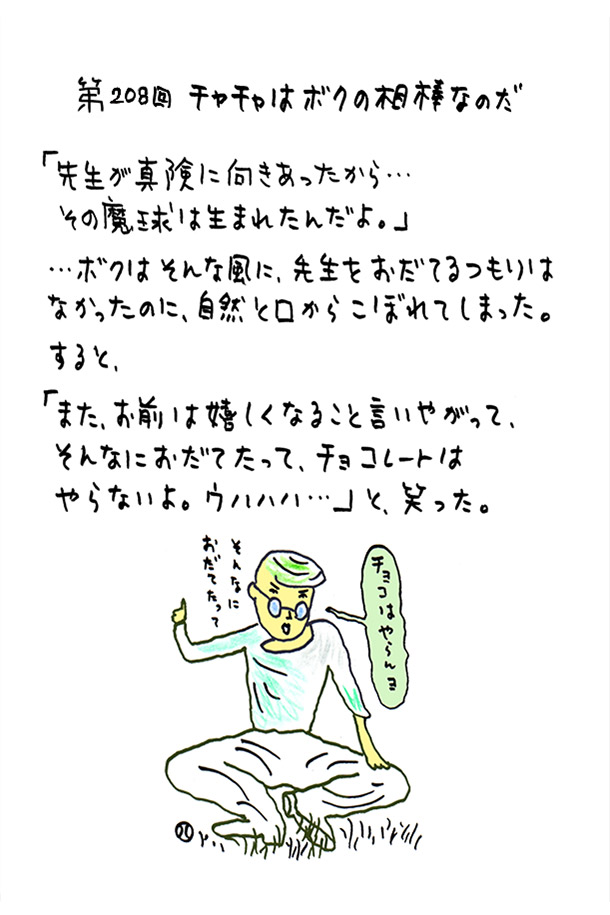 第208回 チャチャはボクの相棒なのだ
「先生が真険に向きあったから…
その魔球は生まれたんだよ。」
…ボクはそんな風に、先生をおだてるつもりは
なかったのに、自然と口からこぼれてしまった。
すると、
「また、お前は嬉しくなること言いやがって、
そんなにおだてたって、チョコレートは
やらないよ。ウハハハ…」と、笑った。
そんなに
おだてたって
チョコはやらんヨ